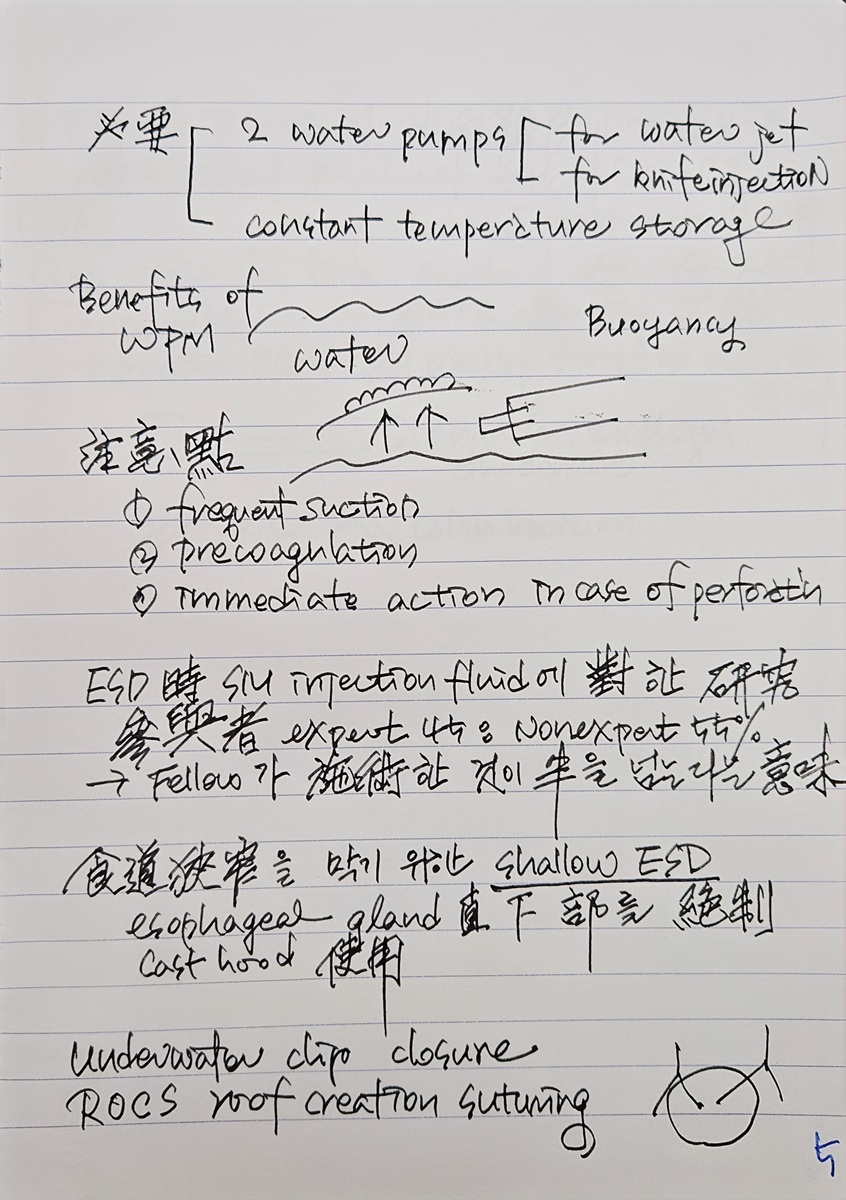 必要 2 water pumps for water jet
for knife injection
constant temperature storage
Benefits of
WPM
water
Buoyancy
注意點
① frequent suction
② precoagulation
immediate action in case of perforatin
ESD 時 SM injection fluid에 對한 研究
參與者 expert 45 : Nonexpert 55%
→ Fellow가 施術한 것이 半을 넘는다는 意味
食道狹窄을 막기 위한 shallow ESD
esophageal gland 直下部를 絶制
Cast hood 使用
underwater clip closure
ROCS roof creation suturing
5